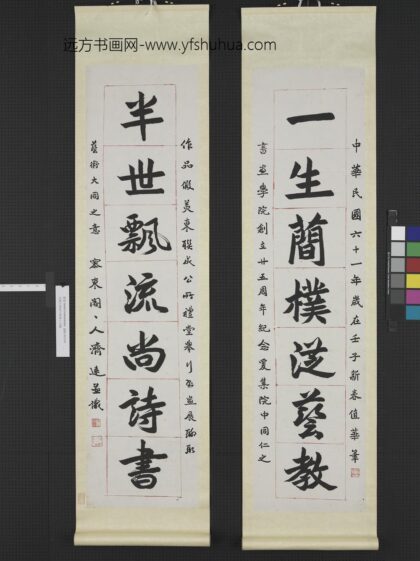 远方书画网-www.yfshuhua.com
中華民國六十一年歲在壬子新春值華
一生簡樸從藝教
書畫學院創立廿五周年紀念爰集院中同仁之
作品假美東聯成公所禮堂舉行書畫展
半世飄流尚詩書
藝術大同之意 人濟遠並識